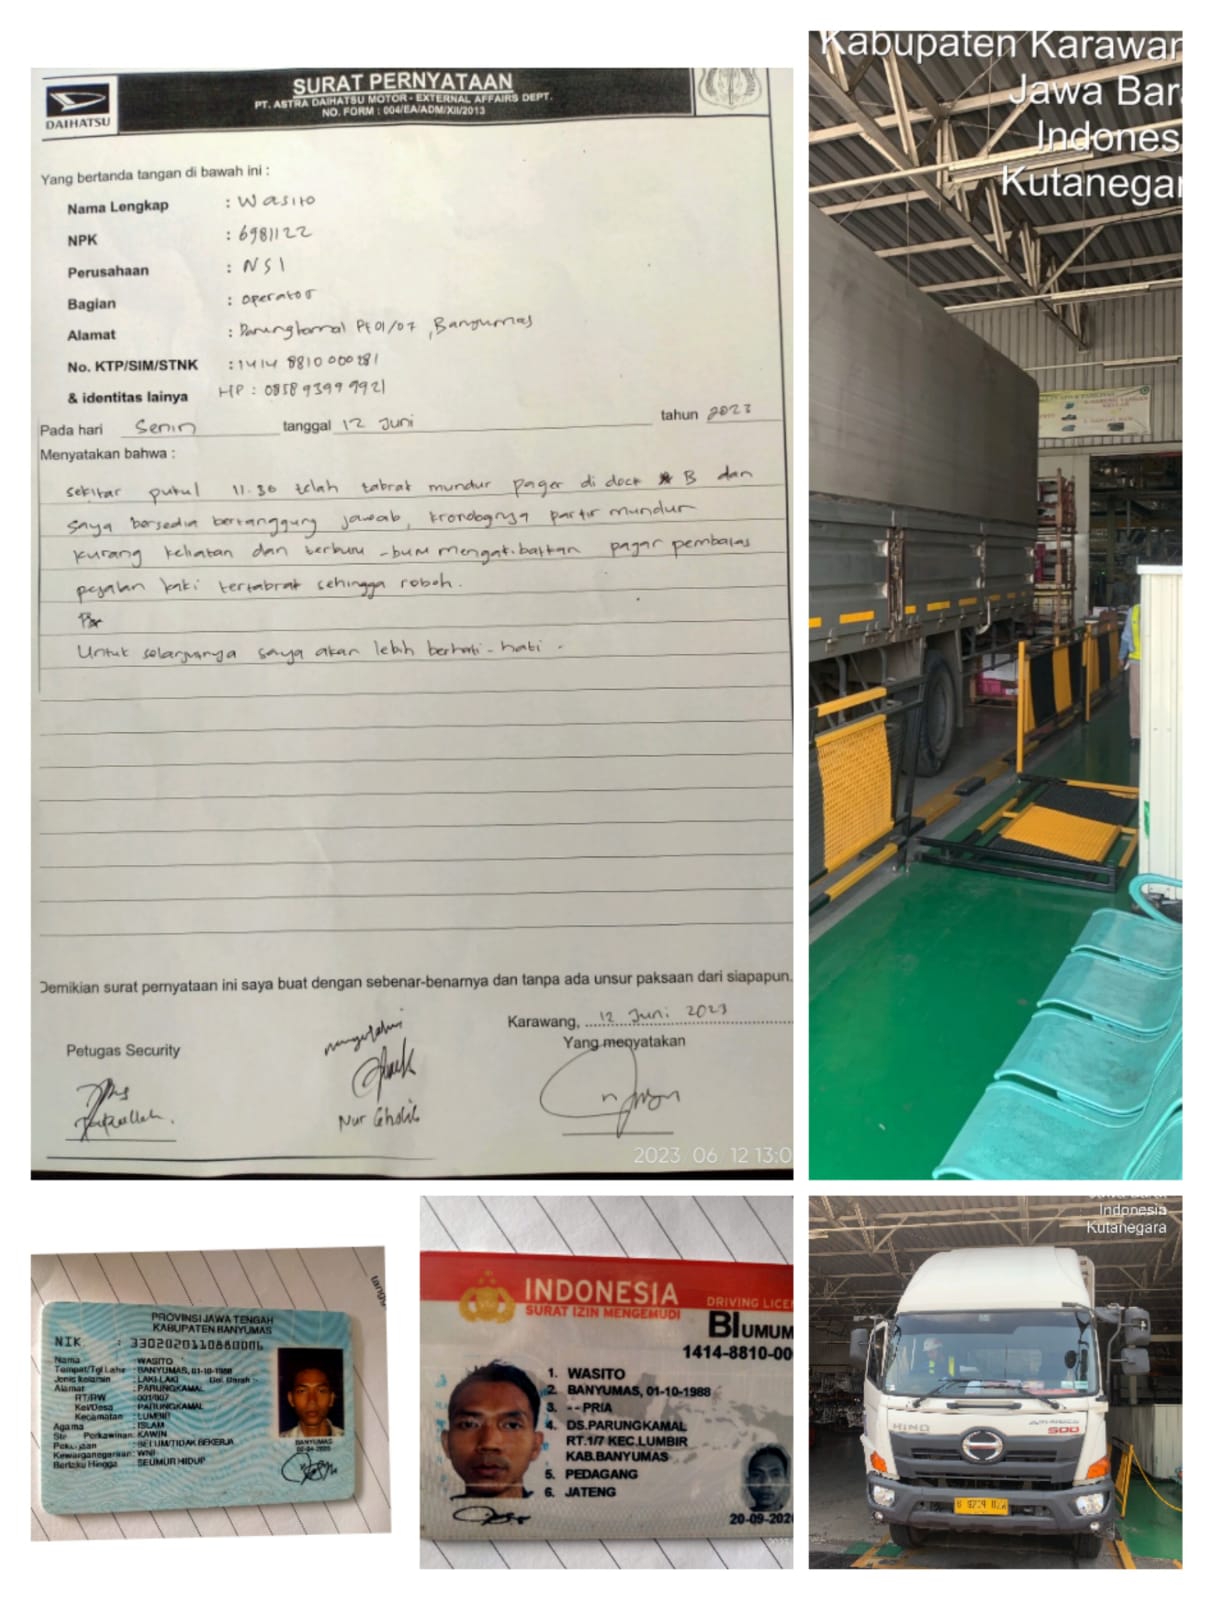 DAIHATSU
SURAT PERNYATAAN
PT. ASTRA DAIHATSU MOTOR - EXTERNAL AFFAIRS DEPT.
NO. FORM : 004/EA/ADM/XII/2013
Yang bertanda tangan di bawah ini :
Nama Lengkap : Wasito
NPK : 6981122
Perusahaan : NSI
Bagian : operator
Alamat : Parungkamal Rt 01/07, Banyumas
No. KTP/SIM/STNK : 1414 8810 000281
& identitas lainya HP : 0858 9399 9921
Pada hari Senin tanggal 12 Juni tahun 2023
Menyatakan bahwa :
sekitar pukul 11.30 telah tabrak mundur pager di dock B dan
saya bersedia bertanggung jawab, kronolognya parkir mundur
kurang keliatan dan terburu-buru mengakibatkan pagar pembatas
pejalan kaki tertabrak sehingga roboh.
Untuk selanjutnya saya akan lebih berhati-hati.
Demikian surat pernyataan ini saya buat dengan sebenar-benarnya dan tanpa ada unsur paksaan dari siapapun.
Karawang, 12 Juni 2023
Petugas Security
mengetahui
Yang menyatakan
Nur Cholis
2023 06 12 13:0
Kabupaten Karawan
Jawa Bar
Indones
Kutanegar
PROVINSI JAWA TENGAH
KABUPATEN BANYUMAS
NIK : 3302020110880006
Nama : WASITO
Tempat/Tgl Lahir : BANYUMAS, 01-10-1988
Jenis kelamin : LAKI-LAKI Gol. Darah : -
Alamat : PARUNGKAMAL
RT/RW : 001/007
Kel/Desa : PARUNGKAMAL
Kecamatan : LUMBIR
Agama : ISLAM
Status Perkawinan: KAWIN
Pekerjaan : BELUM/TIDAK BEKERJA
Kewarganegaraan: WNI
Berlaku Hingga : SEUMUR HIDUP
BANYUMAS
INDONESIA
SURAT IZIN MENGEMUDI
DRIVING LICEN
BI UMUM
1414-8810-00
1. WASITO
2. BANYUMAS, 01-10-1988
3. - - PRIA
4. DS.PARUNGKAMAL
RT.1/7 KEC.LUMBIR
KAB.BANYUMAS
5. PEDAGANG
6. JATENG
20-09-202
Indonesia
Kutanegara
HINO
500